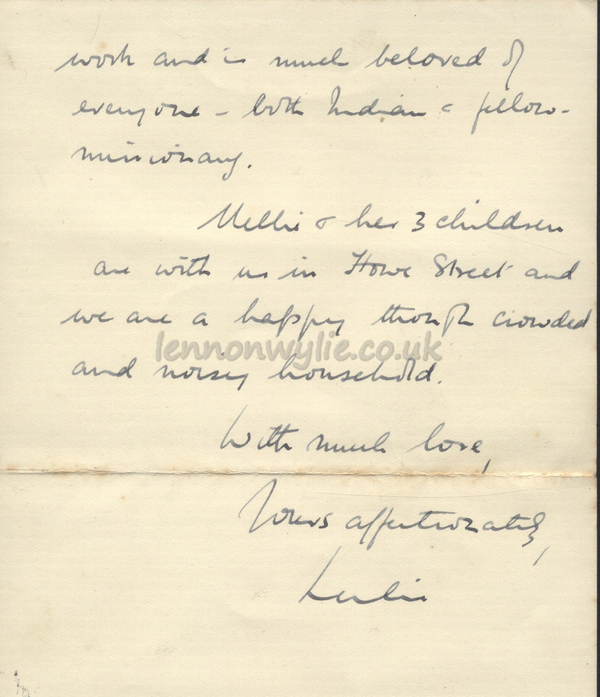 work and is much beloved of
everyone - both Indian & fellow-
missionary.
Nellie & her 3 children
are with us in Howe Street and
we are a happy though crowded
lennonwylie.co.uk
and noisy household.
With much love,
Yours affectionately,
Leslie